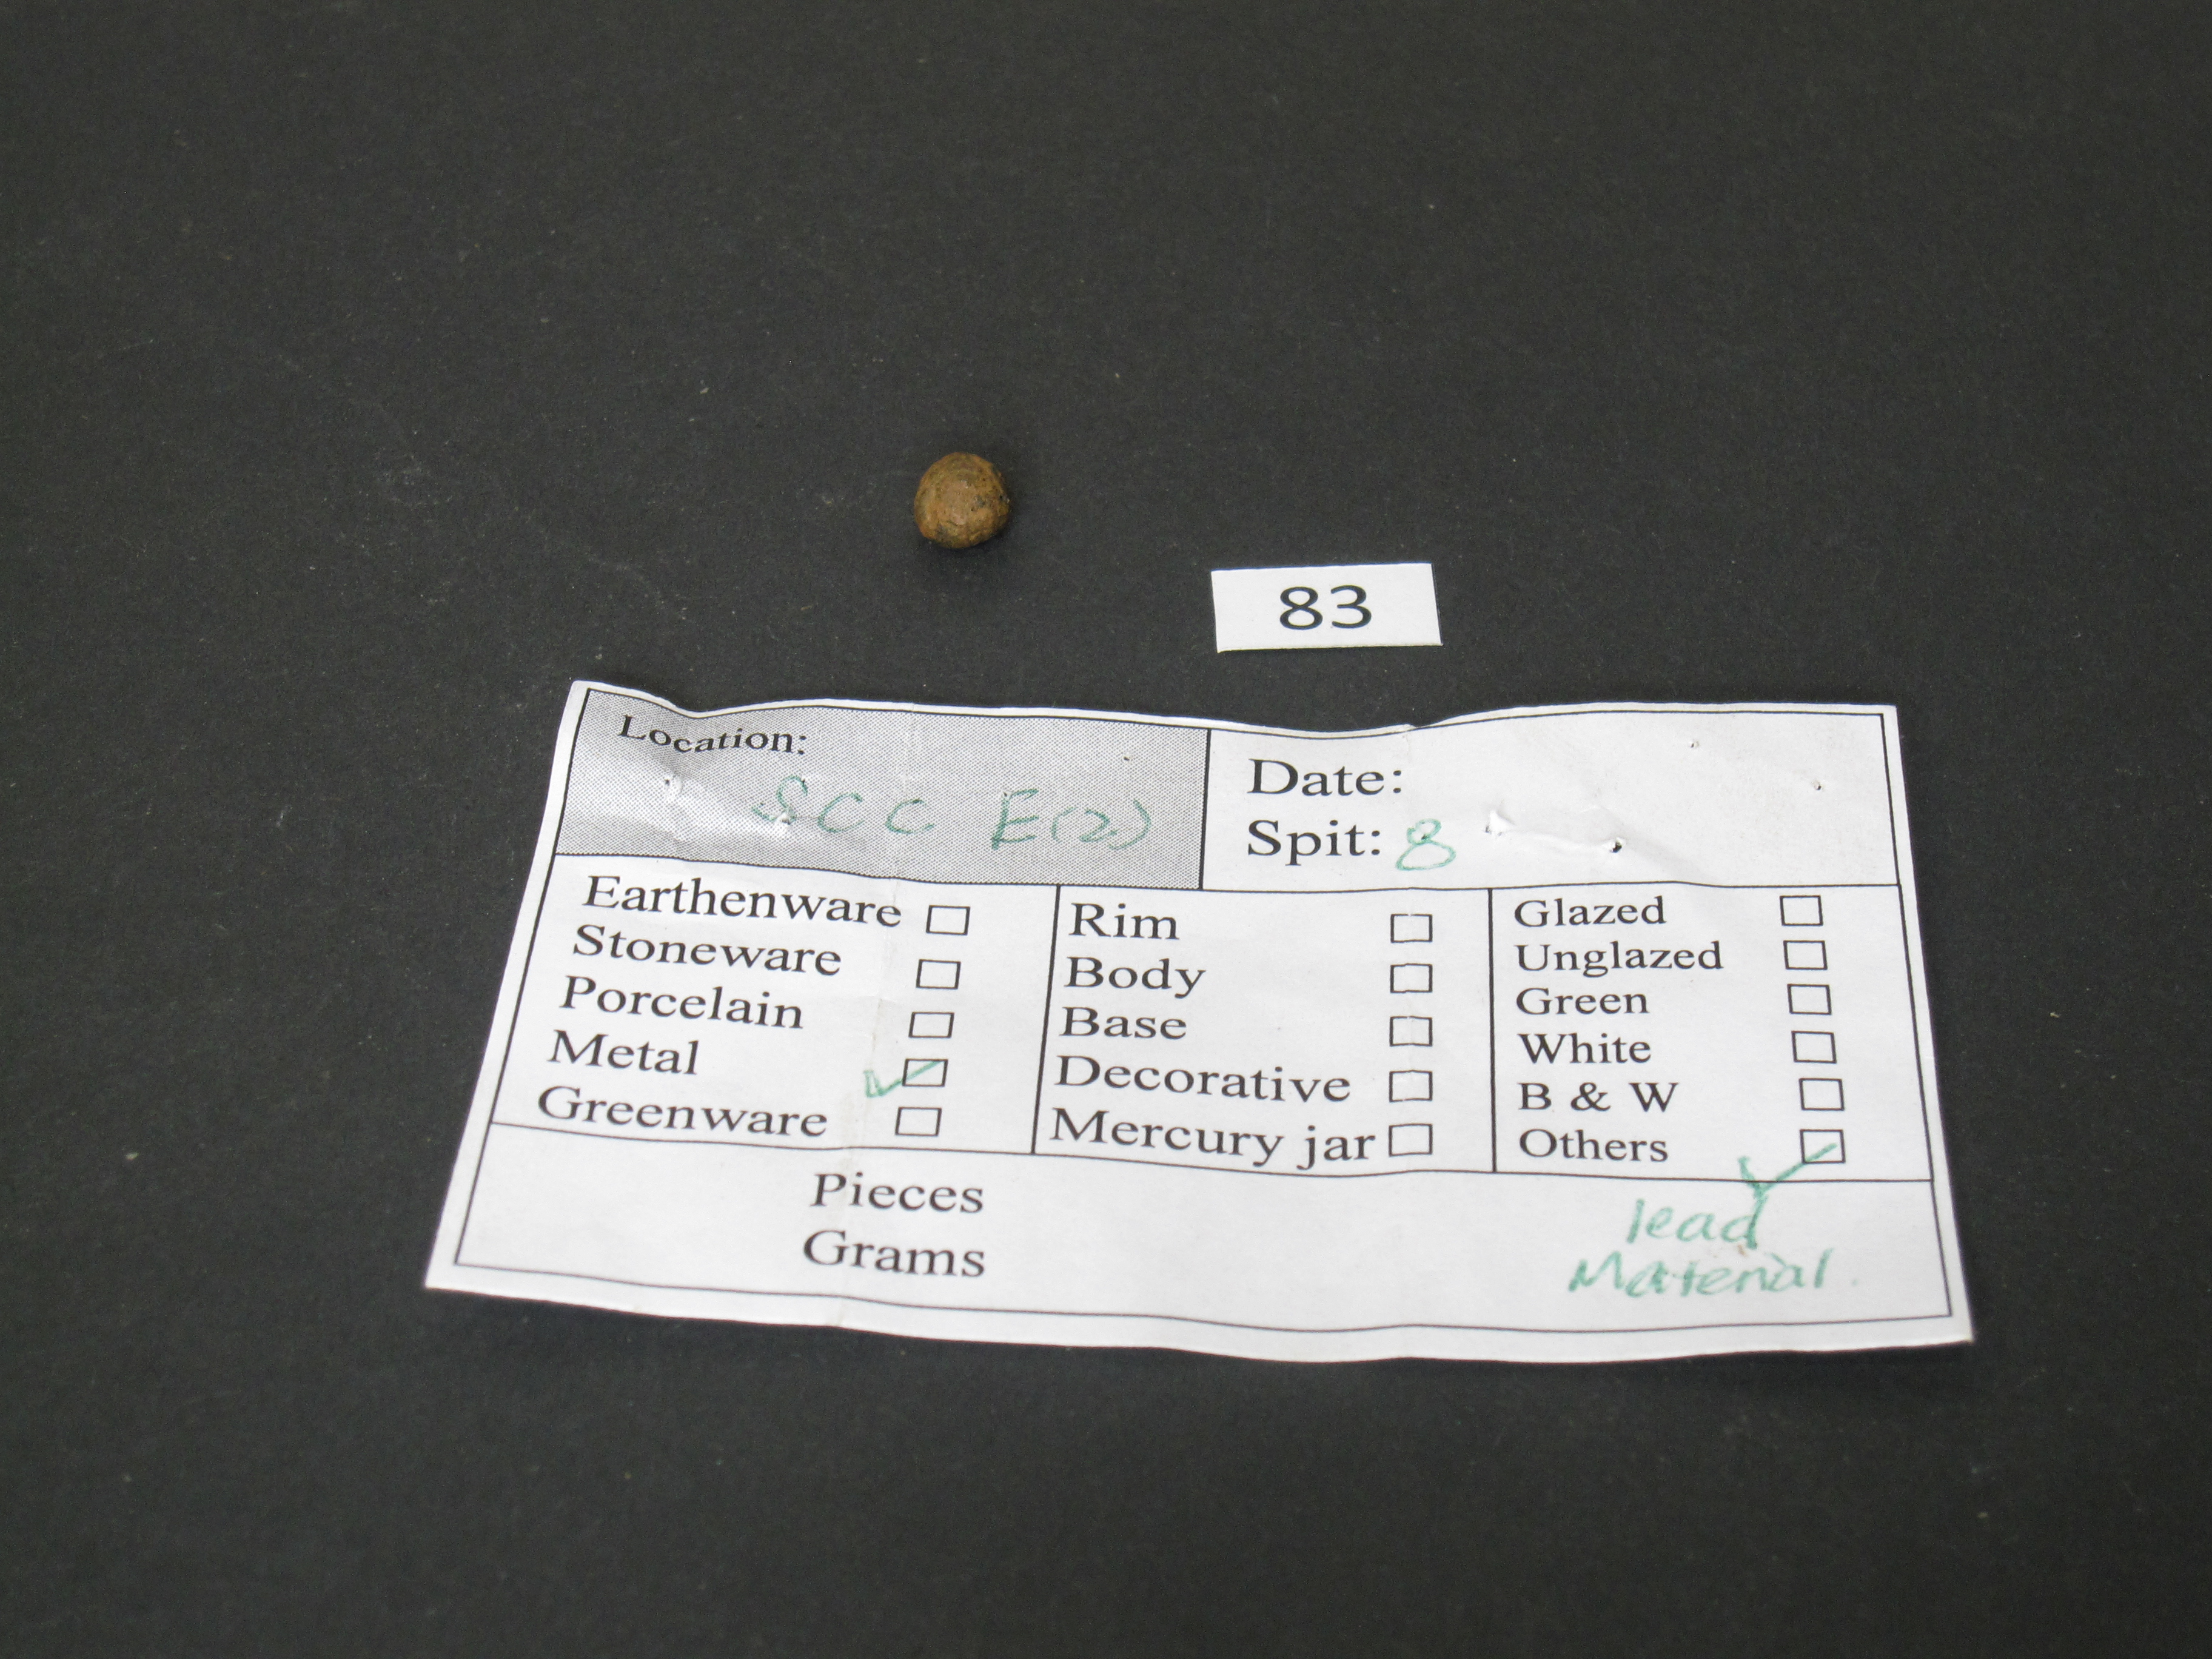 83
Location:
SCC E(2)
Date:
Spit: 8
Earthenware
Stoneware
Porcelain
Metal
Greenware
Rim
Body
Base
Decorative
Mercury jar
Glazed
Unglazed
Green
White
B & W
Others
Pieces
Grams
lead
Material